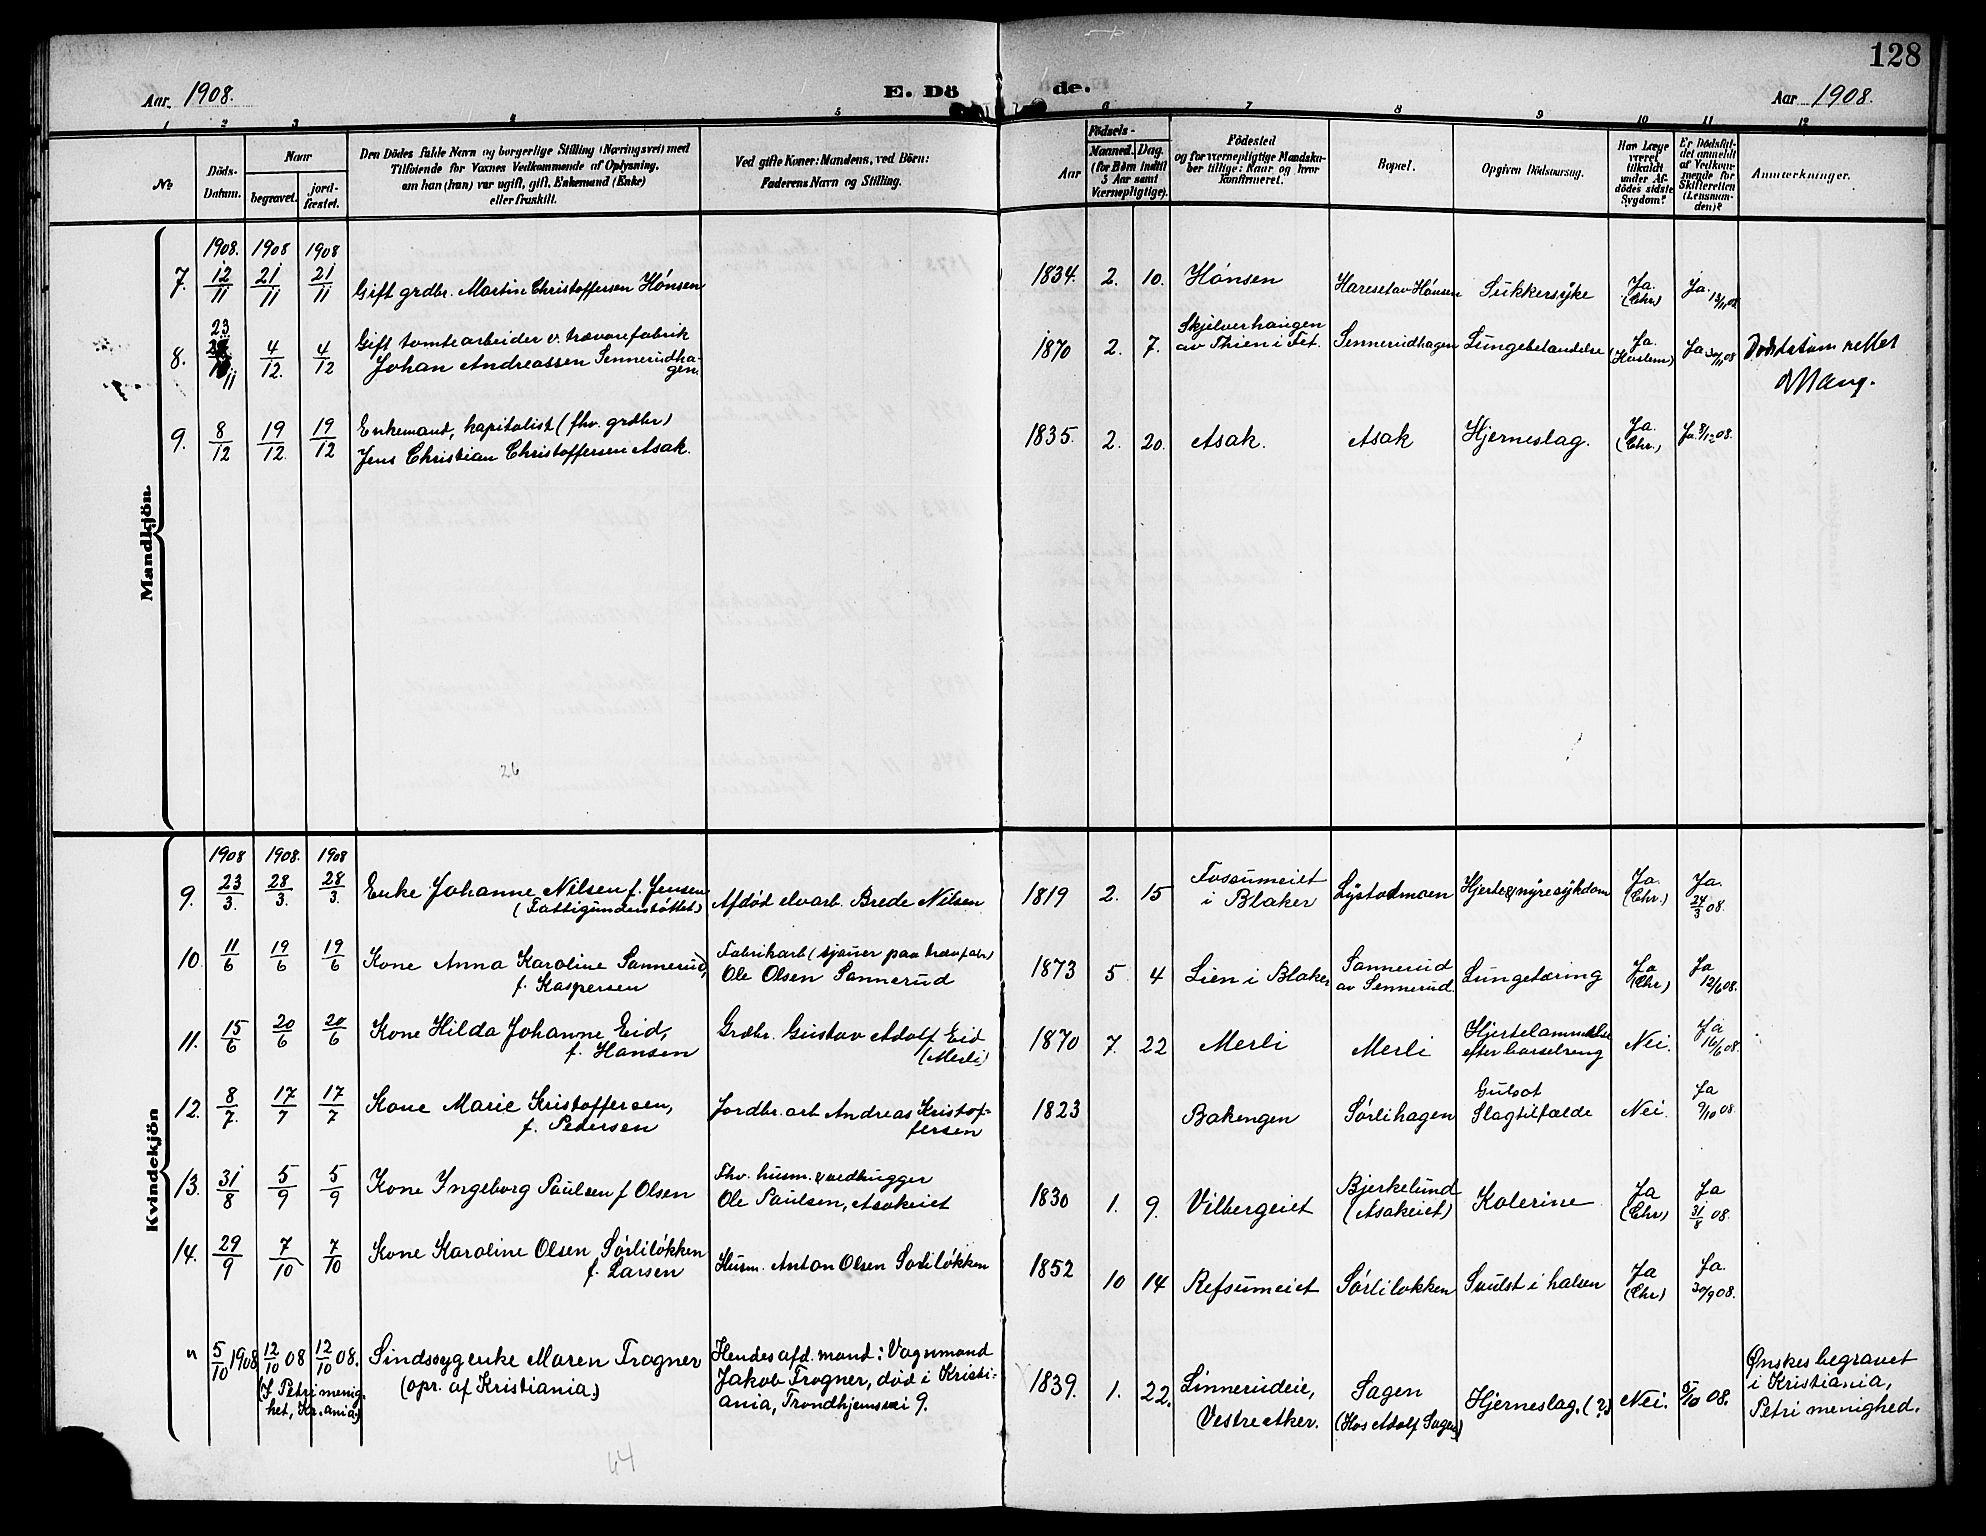 128
Aar 1908.
E. Dö de.
Aar 1908.
1 2 3 4 5 6 7 8 9 10 11 12
No
Döds-
Datum.
Naar
begravet.
jord-
fæstet.
Den Dödes fulde Navn og borgerlige Stilling (Næringsvei) med
Tilföiende for Voxnes Vedkommende af Oplysning,
om han (hun) var ugift, gift, Enkemand (Enke)
eller fraskilt.
Ved gifte Koner: Mandens, ved Börn:
Faderens Navn og Stilling.
Födsels-
Aar
Maaned. Dag.
(for Börn indtil
5 Aar samt
Værnepligtige).
Födested
og for værnepligtige Mandsku-
ber tillige: Naar og hvor
konfirmeret.
Bopæl.
Opgiven Dödsaarsag.
Har Læge
været
tilkaldt
under Af-
dödes sidste
Sygdom?
Er Dödsfal-
det anmeldt
af Vedkom-
mende for
Skifteretten
(Lensman-
den)?
Anmærkninger.
Mandkjön.
1908. 1908 1908
7. 12/11 21/11 21/11 Gift grdbr. Martin Christoffersen Hónsen 1834. 2. 10. Hónsen Haresetav Hónsen Sukkersýke Ja. (Chr) Ja. 13/11 08
8. 23/11 4/12. 4/12 Gift tomtearbeider v. trævarefabrik
Johan Andreassen Sennerudha-
gen. 1870 2. 7. Skjelverhaugen
av Thien i Fet. Sennerudhagen Lungebetændelse Ja. Ja 30/11 08 Dödsdatum rettet
9. 8/12 19/12. 19/12 Enkemand, kapitalist (fhv. grdbr)
Jens Christian Christoffersen Asak. 1835. 2. 20. Asak. Asak Hjerneslag. Ja. (Chr.) Ja. 8/12 08.
26
Kvindekjön
1908 1908. 1908
9. 23/3. 28/3. 28/3. Enke Johanne Nilsen f. Jensen
(Fattigunderstóttet) Afdød elvarb. Brede Nilsen 1819 2. 15 Fossumeiet
i Blaker Lýstadmoen Hjerte & nýresýkdom Ja. (Chr.) Ja. 24/3 08.
10. 11/6 19/6 19/6 Kone Anna Karoline Sannerud,
f. Kaspersen Fabrikarb (sjauer paa trævfabr)
Ole Olsen Sannerud 1873 5 4 Lien i Blaker Sannerud
av Sennerud. Lungetæring Ja (Chr) Ja 12/6 08.
11. 15/6 20/6 20/6 Kone Hilda Johanne Eid,
f. Hansen Grdbr. Gustav Adolf Eid
(Merli) 1870 7. 22 Merli Merli Hjertelammelse
efter barselseng Nei. Ja 16/6 08.
12. 8/7. 17/7 17/7 Kone Marie Kristoffersen,
f. Pedersen Jordbr. arb Andreas Kristof-
fersen 1823 Bakengen Sørlihagen Gulsot
Slagtilfælde Nei. Ja 9/10 08.
13. 31/8 5/9 5/9 Kone Yngeborg Paulsen f Olsen Fhv. husm. & vedhugger
Ole Paulsen, Asakeiet 1830 1. 9. Vilbergeiet Bjerkelund
(Asakeiet) Kolerine Ja (Chr) Ja 31/8 08.
14. 29/9 7/10 7/10 Kone Karoline Olsen Sørliløkken
f. Larsen Husm. Anton Olsen Sørliløkken 1852 10 14 Refsumeiet Sørliløkken Svulst i halsen Ja (Chr) Ja. 30/9 08.
" 5/10 1908 12/10 08 12/10 08.
(I Petri menig-
het, Kr.ania) Sindssyg enke Maren Frogner
(opr. af Kristiania) Hendes afd. mand: Vognmand
Jakob Frogner, død i Kristi-
ania, Trondhjemsvei 9. 1839. 1. 22. Linnerudeie,
Vestre Aker. Sagen
(Hos Adolf Sagen) Hjerneslag. (?) Nei. 5/10 08. Ønskes begravet
i Kristiania,
Petri menighed.
64